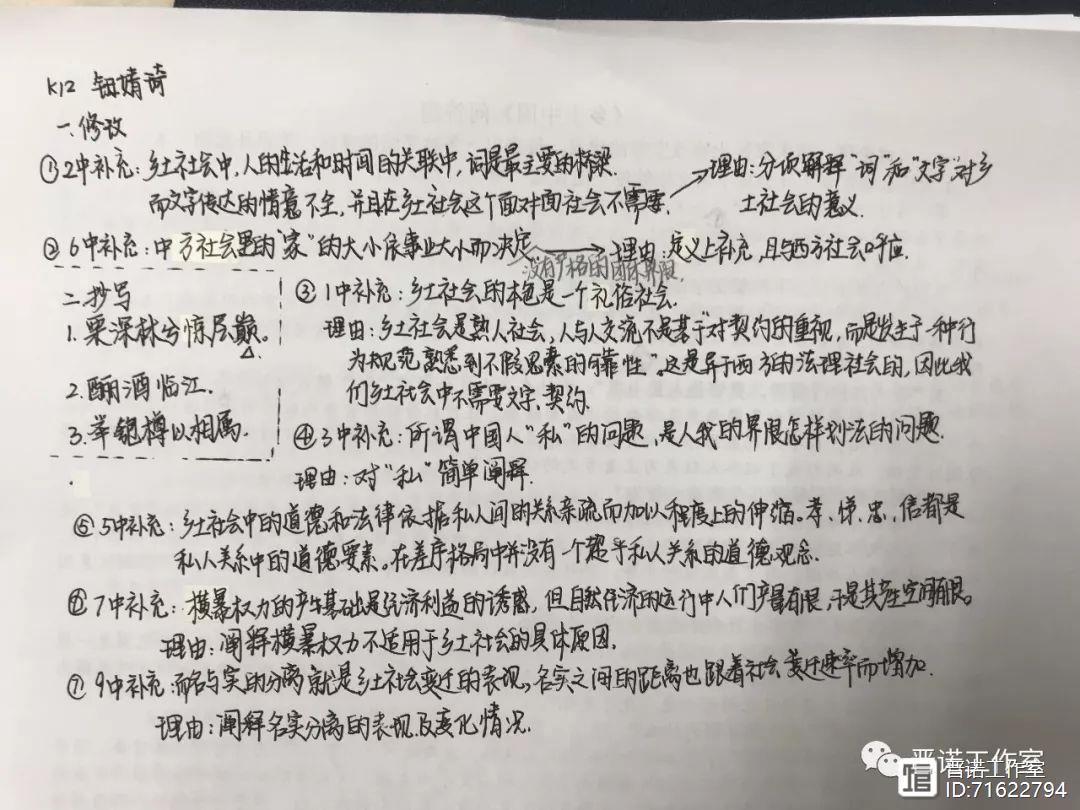 K12 钮婧琦
一.修改
①2中补充:乡土社会中,人的生活和时间的关联中,词是最主要的桥梁.
而文字传达的情意不全,并且在乡土社会这个面对面社会不需要.
理由:分项解释“词”和“文字”对乡
土社会的意义.
②6中补充:中方社会里的“家”的大小依事业大小而决定,
没有严格的团体界限
理由:定义上补充,且与西方社会呼应.
二.抄写
1.栗深林兮惊层巅。
2.酾酒临江.
3.举匏樽以相属.
③1中补充:乡土社会的本色是一个礼俗社会.
理由:乡土社会是熟人社会,人与人交流不是基于“对契约的重视,而是发生于一种行
为规范熟悉到不假思索的可靠性”。这是异于西方的法理社会的,因此我
们乡土社会中不需要文字、契约.
④3中补充:所谓中国人“私”的问题,是人我的界限怎样划法的问题.
理由:对“私”简单阐释.
⑤5中补充:乡土社会中的道德和法律依据私人间的关系亲疏而加以程度上的伸缩。孝、悌、忠、信都是
私人关系中的道德要素。在差序格局中并没有一个超乎私人关系的道德观念.
⑥7中补充:横暴权力的产生基础是经济利益的诱惑,但自然经济的运行中人们产量有限,于是其产生空间有限。
理由:阐释横暴权力不适用于乡土社会的具体原因.
⑦9中补充:而名与实的分离就是乡土社会变迁的表现,名实之间的距离也跟着社会变迁速率而增加.
理由:阐释名实分离的表现及变化情况.
晋诺工作室
晋诺工作室
ID:71622794